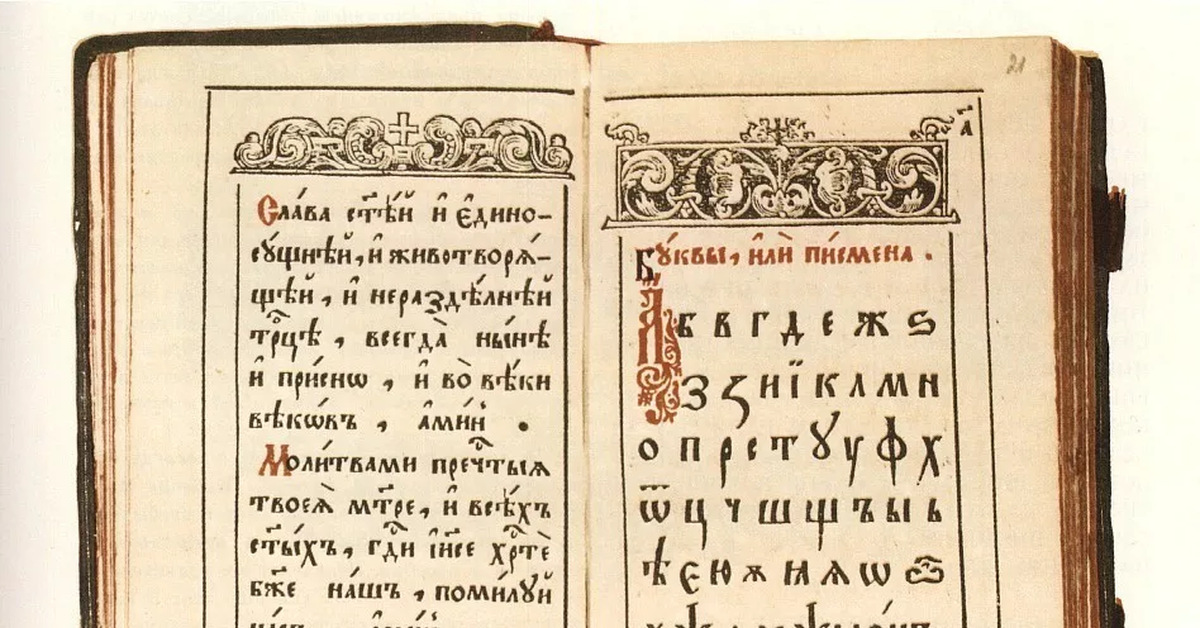 Сла́ва ст҃ѣ́й и҆ є҆дино-
сꙋ́щнѣй, и҆ животворѧ́-
щѣй, и҆ нераздѣ́лнѣй
трⷪ҇цѣ, всегда̀ ны́нѣ
и҆ при́снѡ, и҆ во̀ вѣ́ки
вѣкѡ́въ, а҆ми́нь.
Моли́твами пречⷭ҇тыѧ
твоеѧ̀ мт҃ре, и҆ всѣ́хъ
ст҃ы́хъ, гдⷭ҇и і҆и҃се хрⷭ҇тѐ
бж҃е на́шъ, поми́лꙋй
21
а҃
Бꙋ́квы, и҆лѝ пи́смена.
А б в г д е ж ѕ
З ꙁ и ї к л м н
о п р с т ꙋ у ф х
ѿ ц ч ш щ ъ ы ь
ѣ є ю ѫ ꙗ ѧ ѡ ѽ